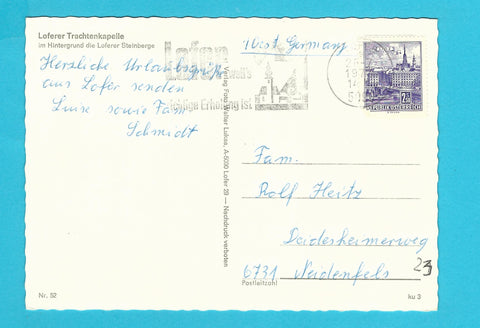 Loferer Trachtenkapelle
im Hintergrund die Loferer Steinberge
Herzliche Urlaubsgrüße
aus Lofer senden
Luise sowie Fam.
Schmidt
West Germany
Lofer
weil's
Erholung ist
Verlag Foto Walter Lukas, A-5090 Lofer 29 — Nachdruck verboten
REPUBLIK ÖSTERREICH
Fam.
Rolf Heitz
Deidesheimerweg
23
6731 Neidenfels
Postleitzahl
Nr. 52
ku 3